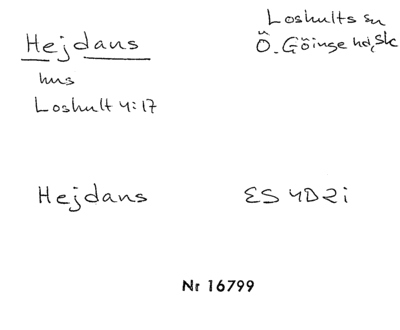 Hejdans
Loshults sn
Ö. Göinge hd, Sk
hus
Loshult 4:17
Hejdans
ES 4D2i
Nr 16799